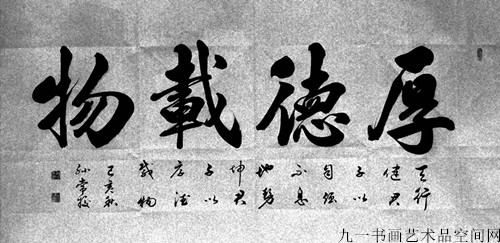 厚德載物
天行
健君
子以
自强
不息
地势
坤君
子以
厚德
载物
己亥秋
孙
九一书画艺术品空间网